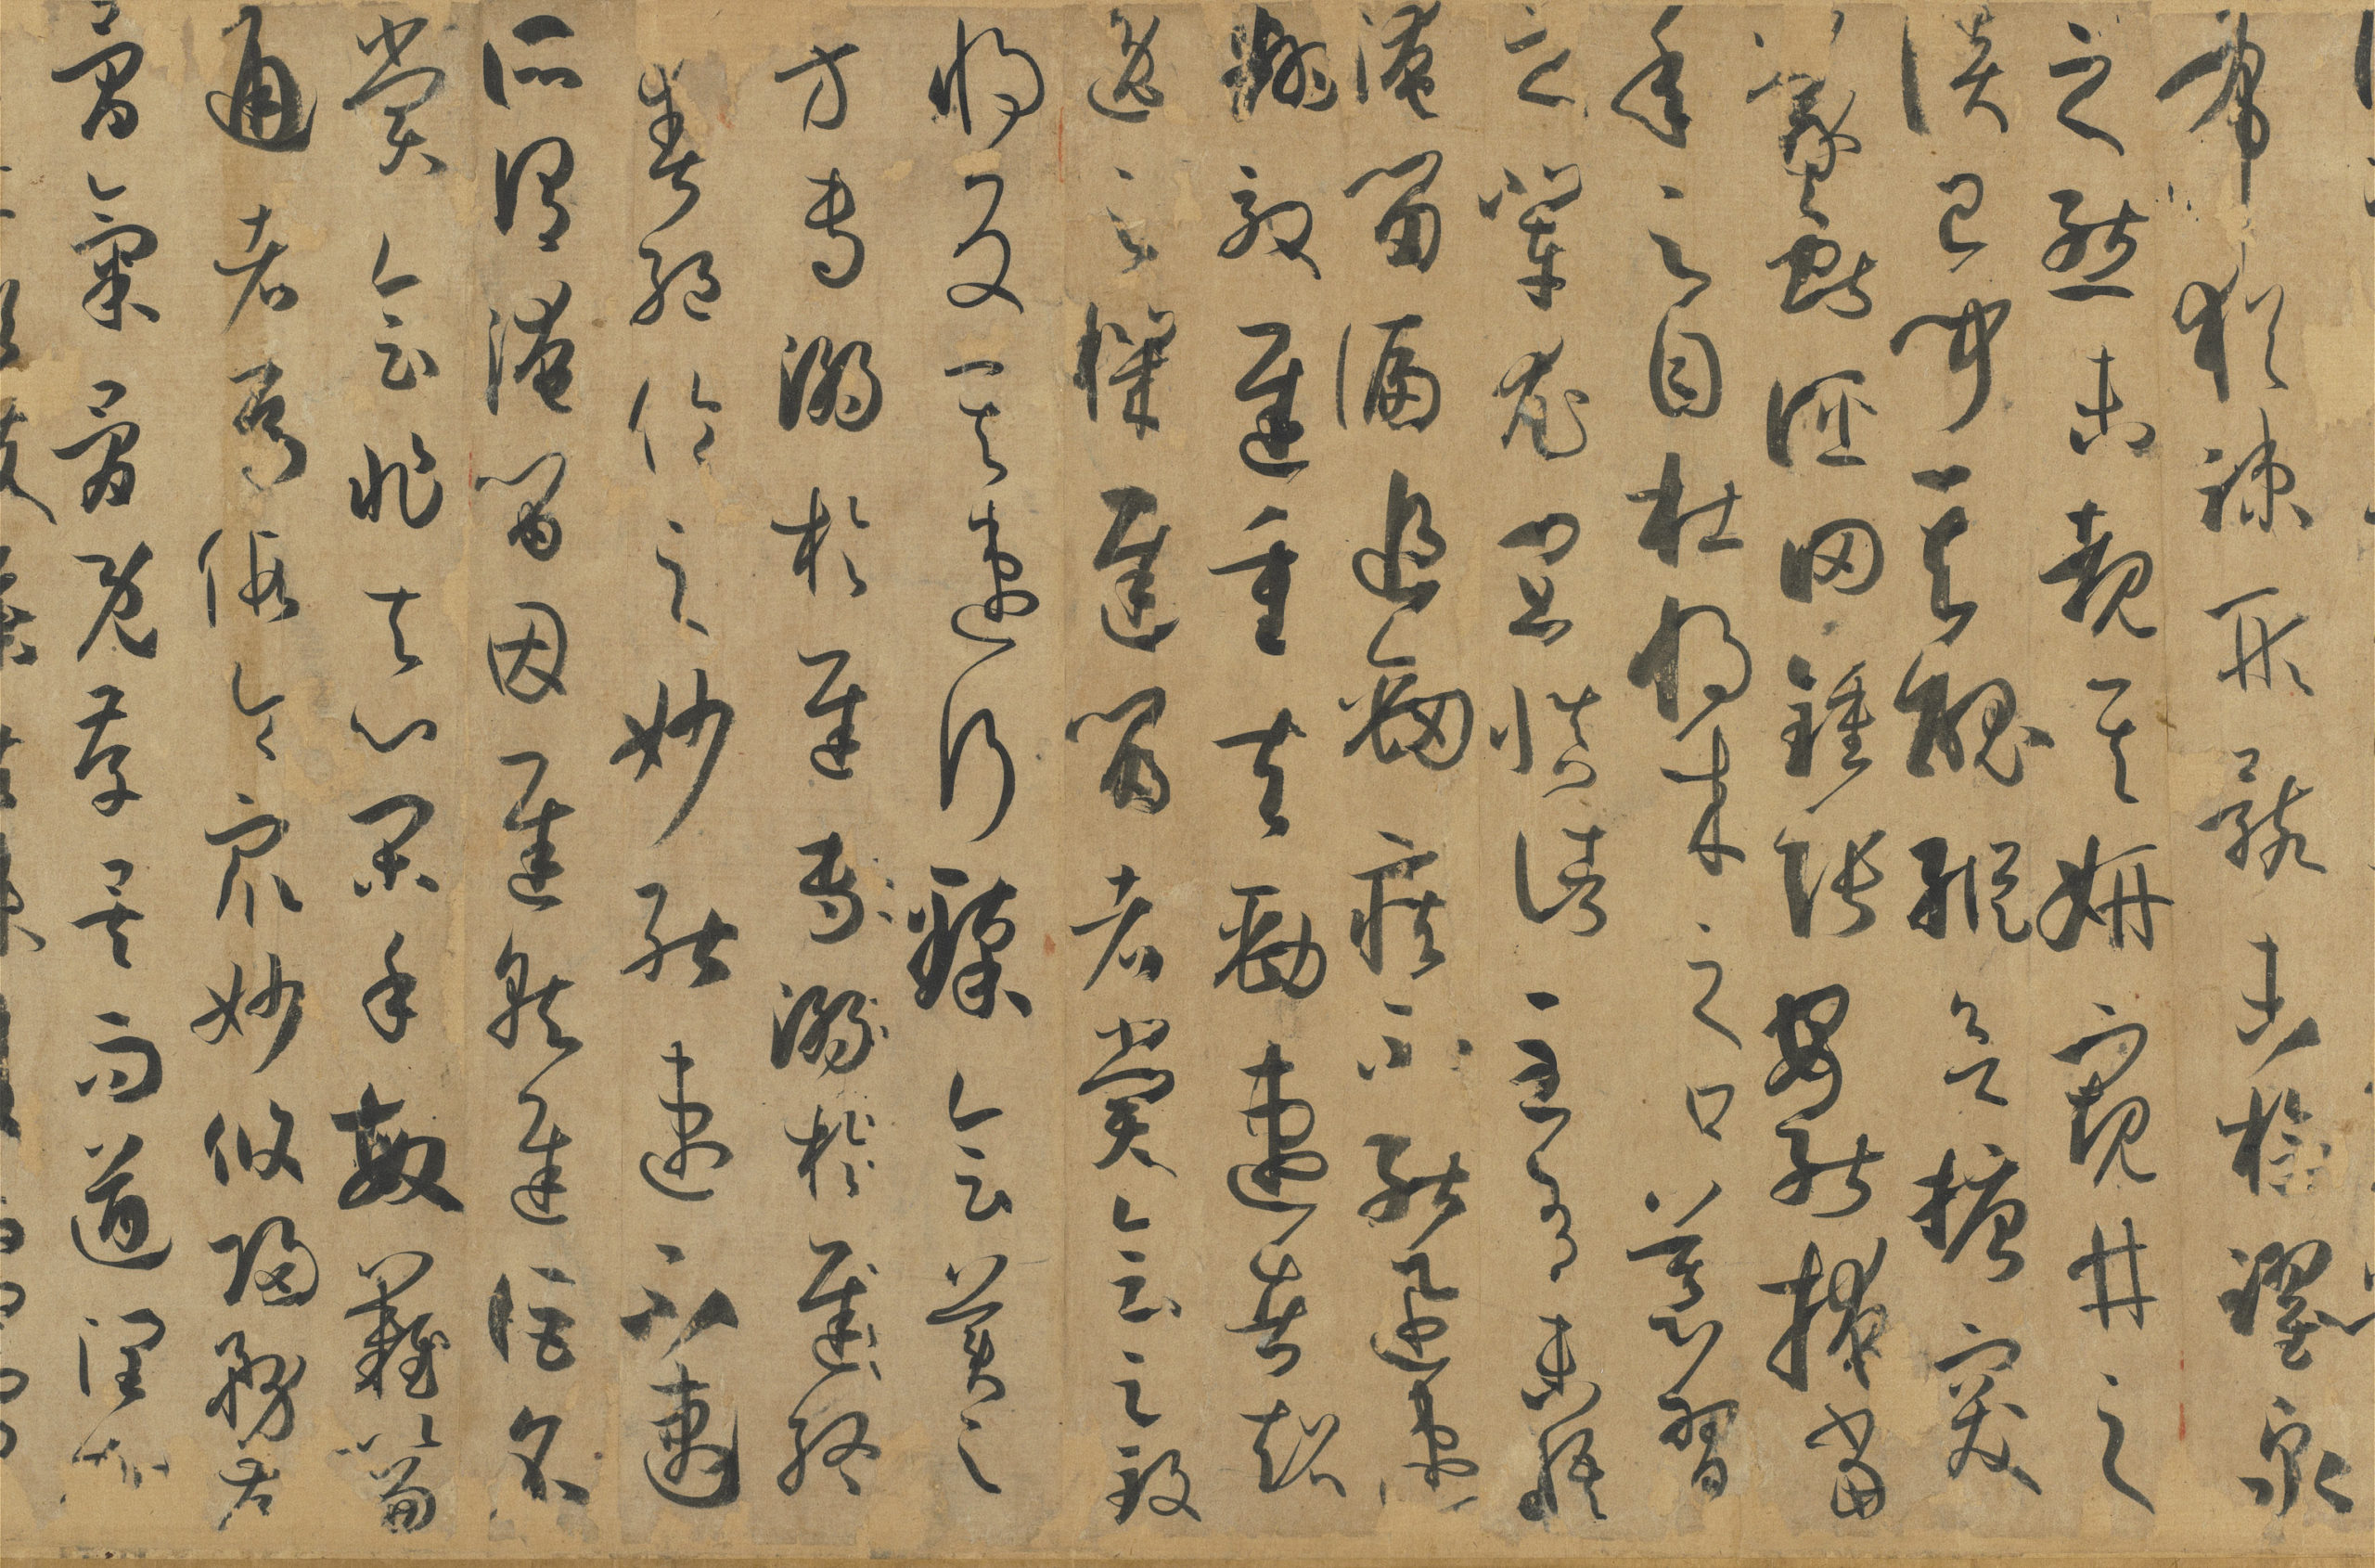 布猶疎形骸未檢躍泉
之態未覩其妍窺井之
談已聞其醜縱欲搪突
羲獻誣罔鍾張安能掩當
年之目杜將來之口慕習
之輩尤宜慎諸至有未悟
淹留偏追勁疾不能迅速
翻效遲重夫勁速者超
逸之機遲留者賞會之致
將反其速行臻會美之
方專溺於遲終
爽絕倫之妙能速不速
所謂淹留因遲就遲詎名
賞會非夫心閑手敏難以兼
通者焉假令衆妙攸歸務存
骨氣骨既存矣而遒潤加